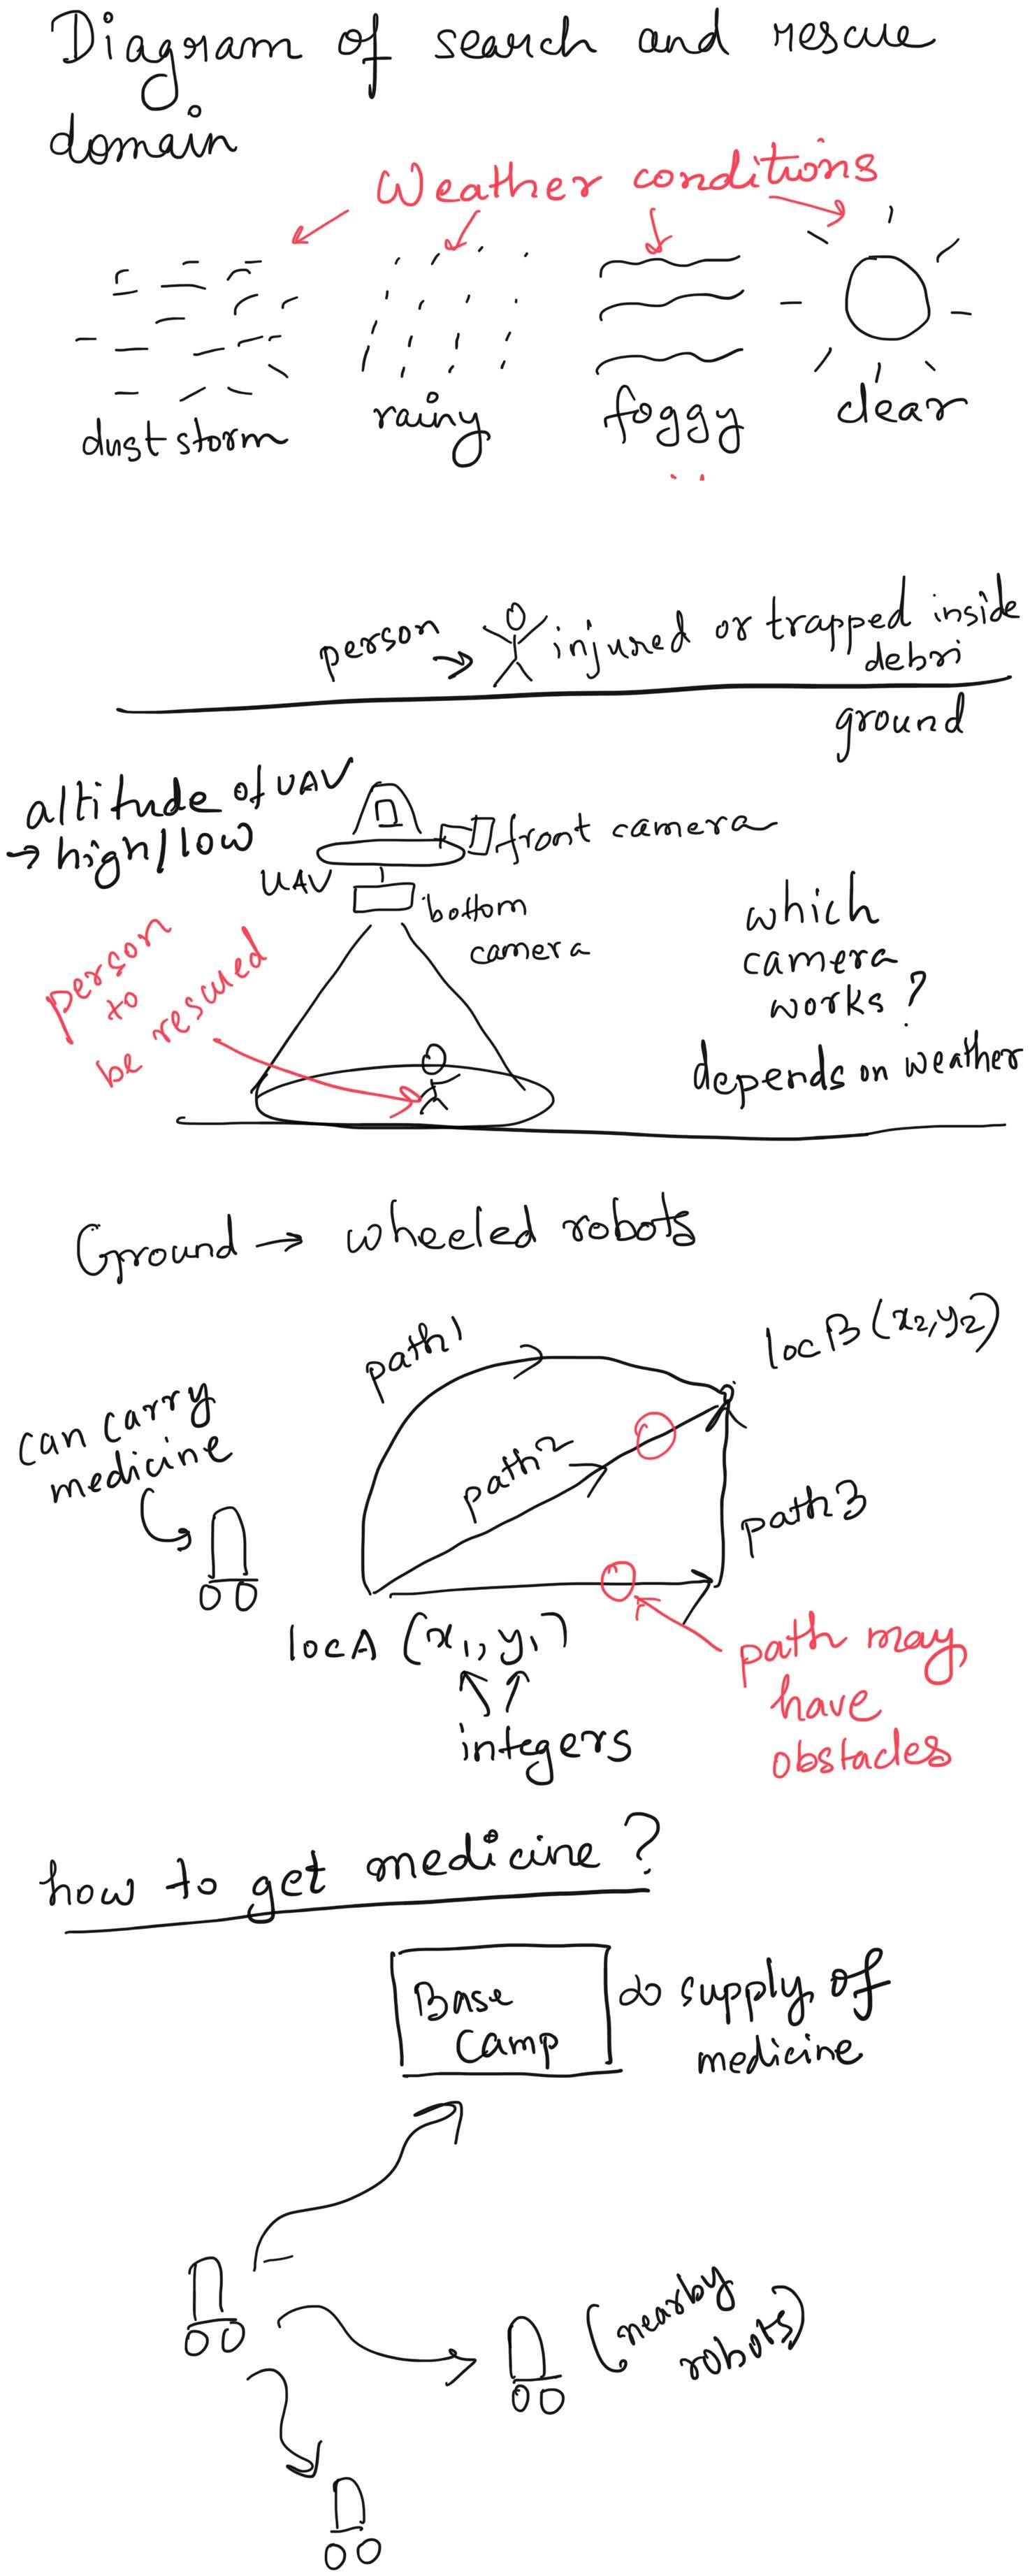 Diagram of search and rescue
domain
Weather conditions
dust storm
rainy
foggy
clear
person → injured or trapped inside
debri
ground
altitude of UAV
→ high/low
UAV
front camera
bottom
camera
person
to
be rescued
which
camera
works?
depends on weather
Ground → wheeled robots
can carry
medicine
path1
path2
path3
locB (x2,y2)
locA (x1, y1)
integers
path may
have
obstacles
how to get medicine?
Base
Camp
∞ supply of
medicine
(nearby
robots)